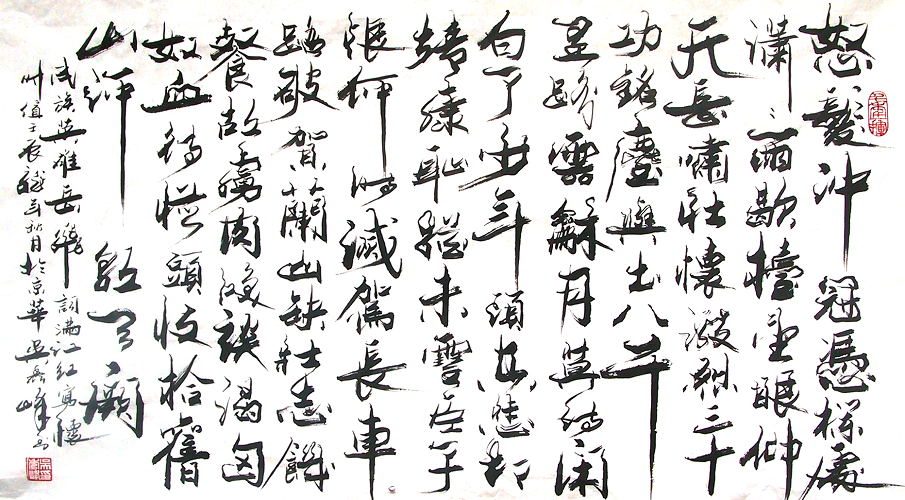 怒髮冲冠憑欄處
瀟瀟雨歇擡望眼仰
天長嘯壯懷激烈三十
功銘塵與土八千
里路雲龢月莫等闲
白了少年頭空悲切
靖康恥猶未雪臣子
恨何时滅駕長車
踏破賀蘭山缺壯志飢
餐胡虜肉笑談渴匈
奴血待從頭收拾舊
山河朝天闕
民族英雄岳飛詞滿江紅寫懷
时值壬辰秋月於京華吴岳峰书